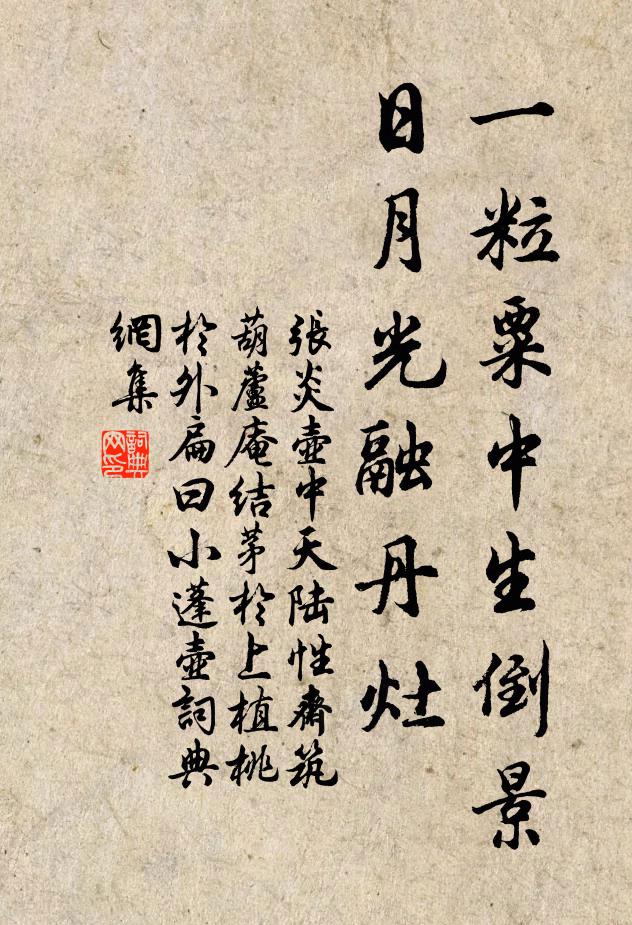 一粒粟中生倒景
日月光融丹灶
張炎壺中天陆性齋筑
葫蘆庵结茅於上植桃
於外扁曰小蓬壺詞典
網集
詞典
网印